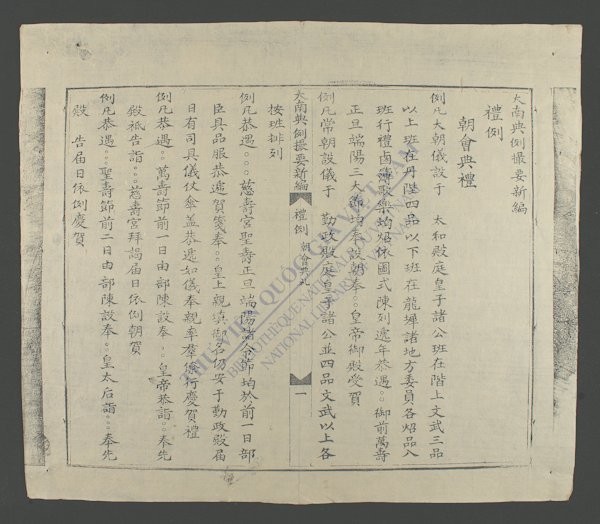 大南典例撮要新編
禮例
朝會典禮
例凡大朝儀設于 太和殿庭皇子諸公班在階上文武三品
以上班在丹陛四品以下班在龍墀諸地方委員各炤品入
班行禮鹵簿歌樂均炤依圖式陳列遞年恭遇○○御前萬壽
正旦端陽三大節均奉設朝奉○皇帝御殿受賀
例凡常朝設儀于 勤政殿庭皇子諸公並四品文武以上各
大南典例撮要新編 禮例 朝會典禮 一
按班排列
例凡恭遇○○○慈壽宮聖壽正旦端陽諸令節均於前一日部
臣具品服恭遞賀箋奉○皇上親填御名仍安于勤政殿屆
日有司具儀仗傘蓋恭遞如儀奉親率羣臣行慶賀禮
例凡恭遇○○萬壽節前一日由部陳設奉○皇帝恭詣○○奉先
殿祗告詣○○○慈壽宮拜謁屆日依例朝賀
例凡恭遇○○○聖壽節前二日由部陳設奉○皇太后詣○○○奉先
殿 告屆日依例慶賀
THƯ VIỆN QUỐC GIA VIỆT NAM
BIBLIOTHÈQUE NATIONALE DU VIETNAM
NATIONAL LIBRARY OF VIETNAM